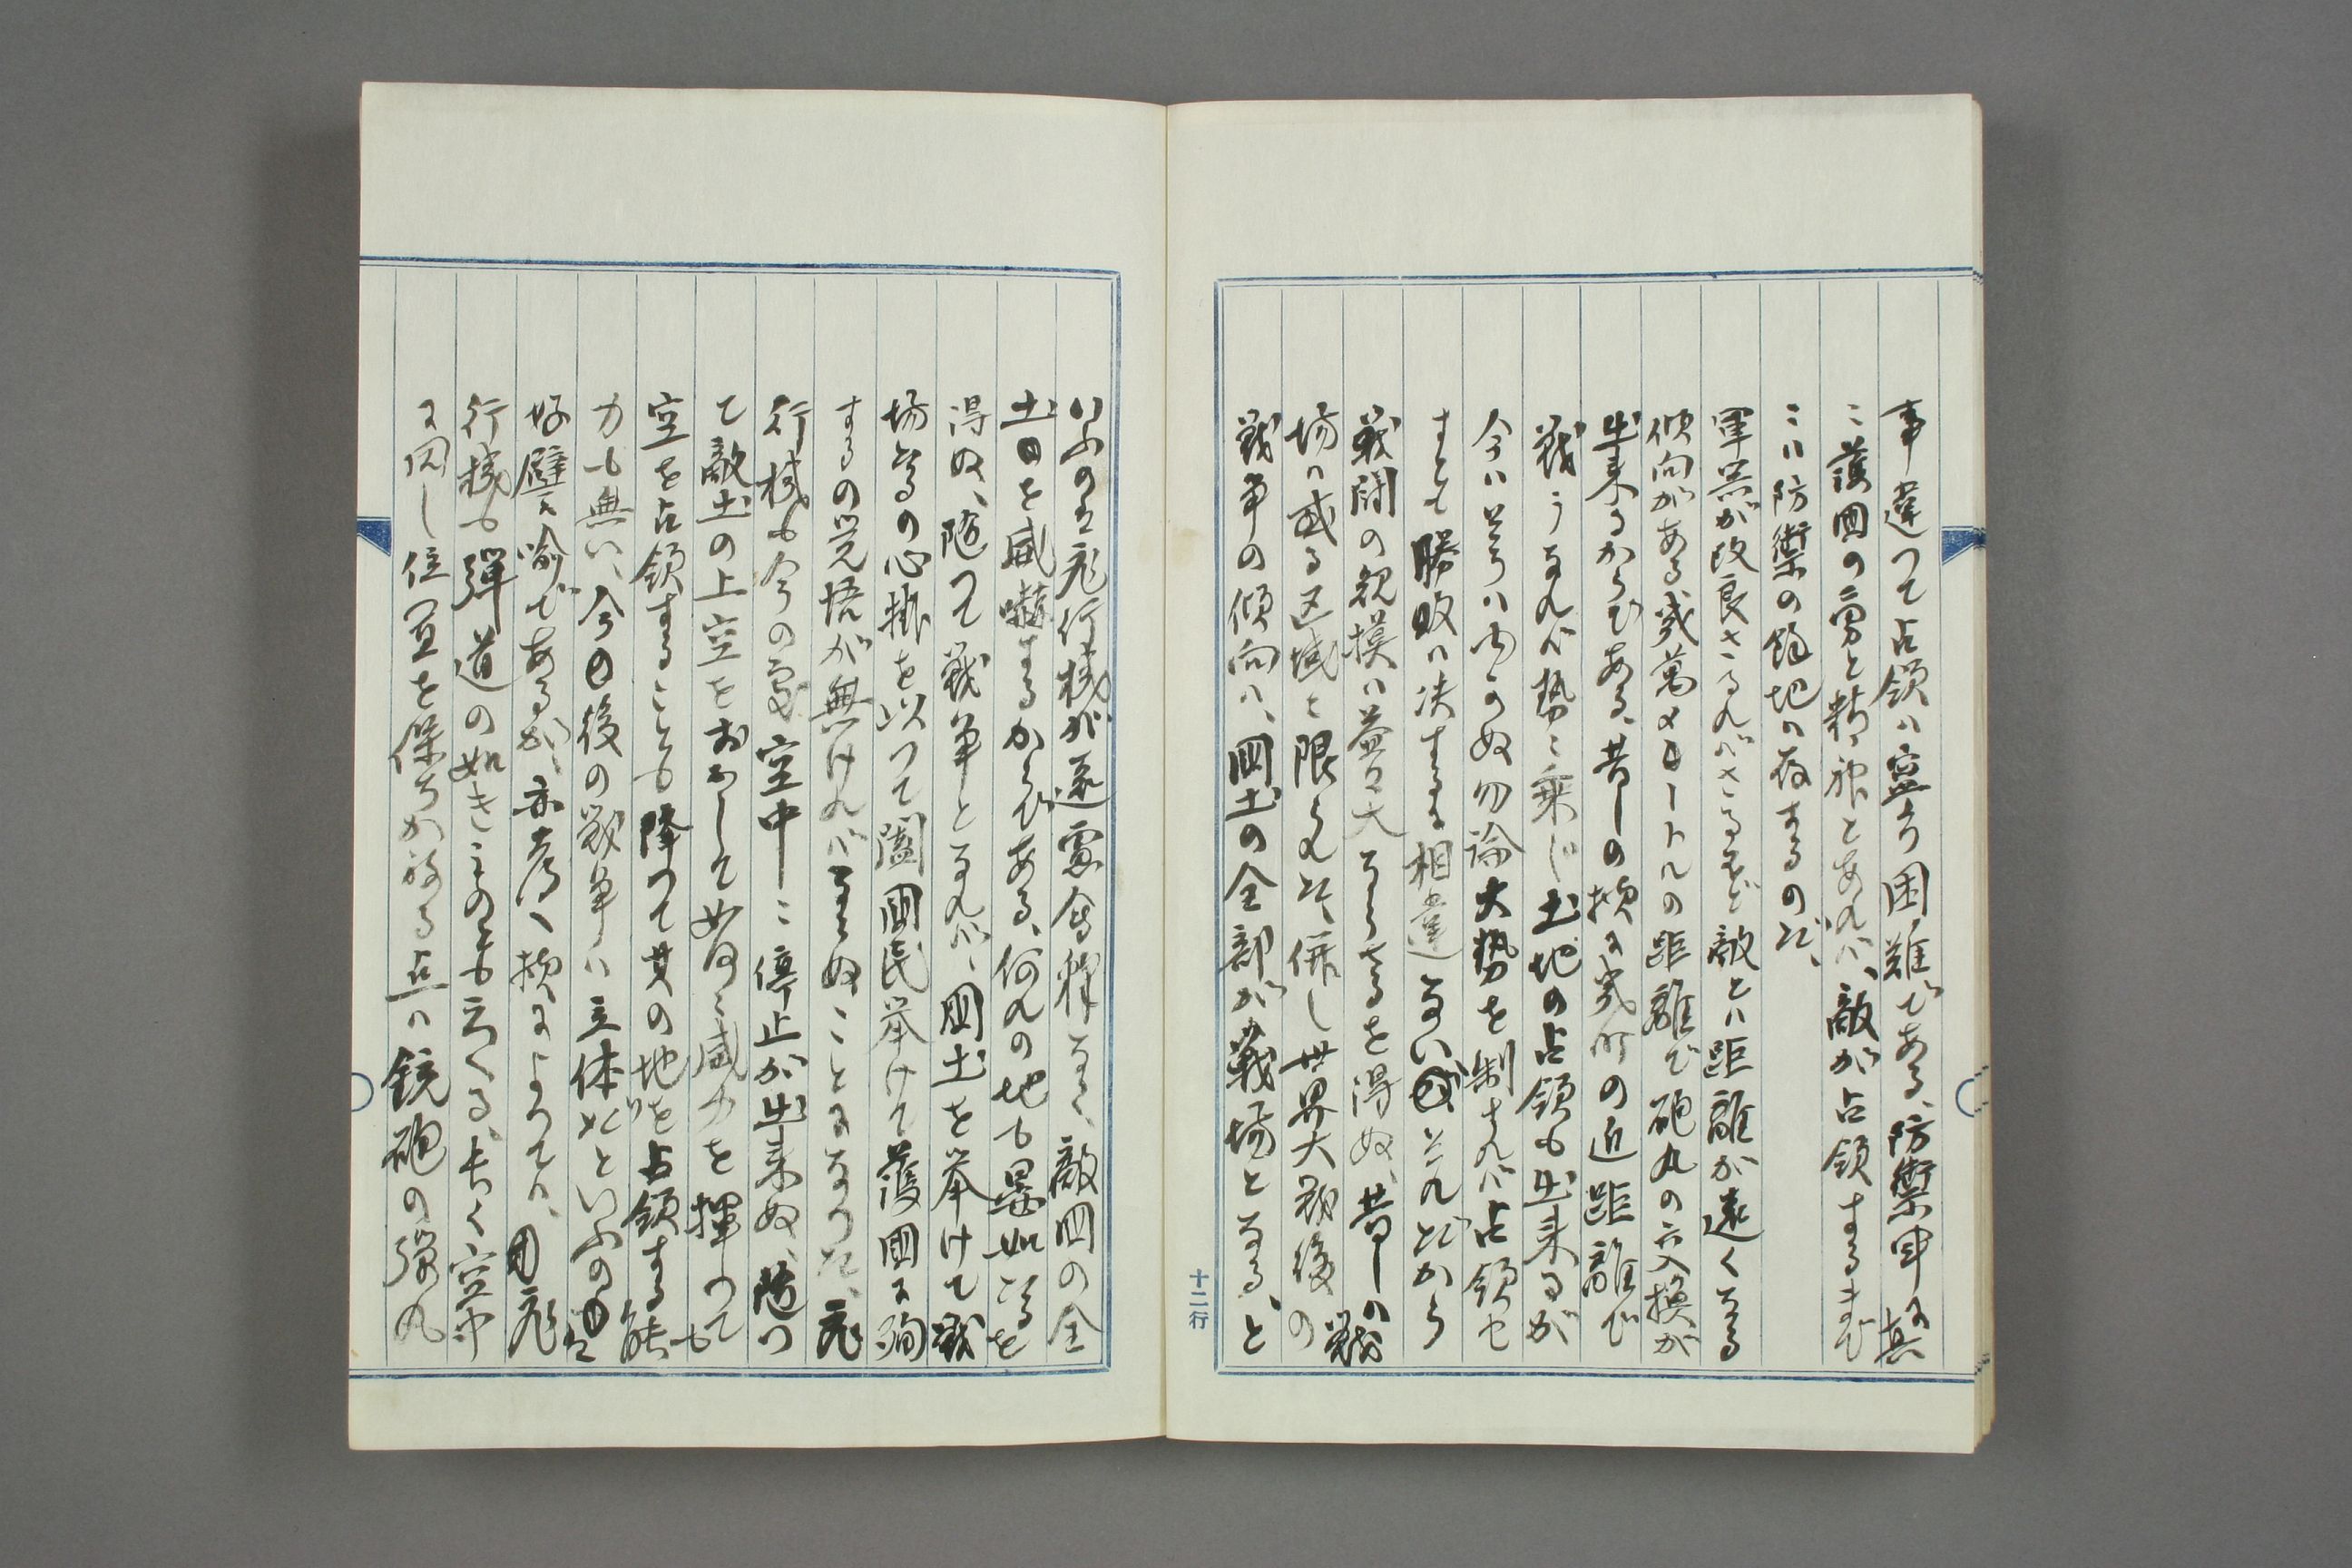 事違つて占領ハ寧ろ困難である、防禦軍に真
に護国の勇と精神とあれバ、敵が占領するまで
にハ防禦の餘地ハ存するのだ、
軍器が改良さるればさるるほど敵とハ距離が遠くなる
傾向がある幾萬メートルの距離で砲丸の交換が
出来るからである、昔しの様に幾町の近距離で
戦うなれバ勢に乗じ土地の占領も出来るが
今ハそうハゆかぬ勿論大勢を制すれバ占領せ
すとも勝敗ハ决するに相違ない、それだから
戦闘の規摸ハ益々大ならざるを得ぬ、昔しハ戦
場ハ或る区域と限られた、併し世界大戦後の
戦争の傾向ハ、国土の全部が戦場となる、と
いふのは飛行機が遠慮會釋なく、敵国の全
土を威嚇するからである、何れの地も暴如たるを
得ぬ、随つて戦争となれバ、国土を挙けて戦
場なるの心掛を以つて闔國民挙けて護國に殉
するの覚悟が無けれバならぬことになつた、飛
行機も今の處空中に停止が出来ぬ、随つ
て敵土の上空をおかして如何に威力を揮つても
空を占領することも降つて其の地を占領する能
力も無い、今後の戦争ハ立体だといふのは
好譬喩であるが、亦考へ様によつてハ、飛
行機も弾道の如きものとも云へる、長く空中
に閃し位置を保ちか移る点ハ銃砲の弾丸
十二行